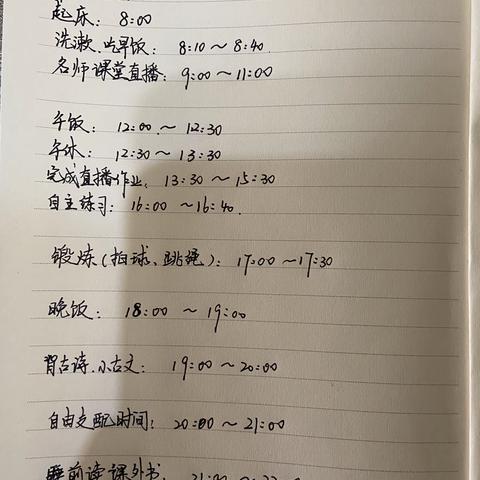 起床：8:00
洗漱、吃早饭：8:10～8:40.
名师课堂直播：9:00～11:00
午饭：12:00～12:30
午休：12:30～13:30
完成直播作业：13:30～15:30
自主练习：16:00～16:40.
锻炼(拍球、跳绳)：17:00～17:30
晚饭：18:00～19:00
背古诗、小古文：19:00～20:00
自由支配时间：20:00～21:00
睡前读课外书：